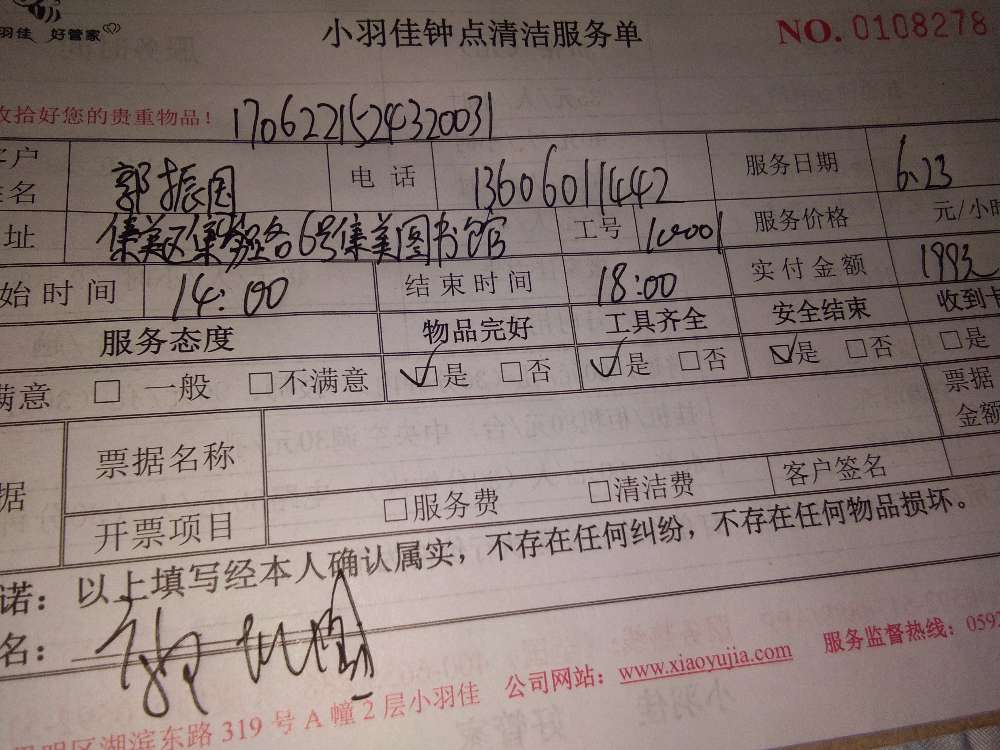 羽佳 好管家
小羽佳钟点清洁服务单
NO. 0108278
收拾好您的贵重物品！
1706221524320031
客户姓名 郭振国 电话 13606011442 服务日期 6.23
址 集美区集 6号集美图书馆 工号 服务价格 元/小时
始时间 14:00 结束时间 18:00 实付金额
服务态度 物品完好 工具齐全 安全结束 收到卡
满意 □一般 □不满意 ☑是 □否 ☑是 □否 ☑是 □否 □是
据 票据名称 票据金额
开票项目 □服务费 □清洁费 客户签名
诺：以上填写经本人确认属实，不存在任何纠纷，不存在任何物品损坏。
名：
思明区湖滨东路 319 号 A 幢 2 层小羽佳 公司网站：www.xiaoyujia.com 服务监督热线：059